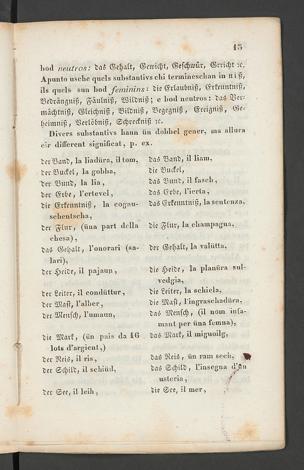 15
bod neutros: das Gehalt, Gewicht, Geschwür, Gericht ꝛc.
Apunto usche quels substantivs chi termineschan in niß,
ils quels sun bod feminins: die Erlaubniß, Erkenntniß,
Bedrängniß, Fäulniß, Wildniß; e bod neutros: das Ver-
mächtniß, Gleichniß, Bildniß, Begegniß, Ereigniß, Ge-
heimniß, Verlöbniß, Schreckniß ꝛc.
Divers substantivs haun ün dobbel gener, ma allura
eir different significat, p. ex.
der Band, la liadüra, il tom, das Band, il liam,
der Buckel, la gobba, die Buckel,
der Bund, la lia, das Bund, il fasch,
der Erbe, l'ertevel, das Erbe, l'ierta,
die Erkenntniß, la cognu- das Erkenntniß, la sentenza,
schentscha,
der Flur, (üna part della die Flur, la champagna,
chesa),
das Gehalt, l'onorari (sa- der Gehalt, la valütta,
lari),
der Heide, il pajaun, die Heide, la planüra sul-
vedgia,
der Leiter, il condüttur, die Leiter, la schiela,
der Mast, l'alber, die Mast, l'ingraschadüra,
der Mensch, l'umaun, das Mensch, (il nom infa-
mant per üna femna),
die Mark, (ün pais da 16 das Mark, il miguoilg,
lots d'argient,)
der Reis, il ris, das Reis, ün ram sech,
der Schild, il schiüd, das Schild, l'insegna d'ün
usteria,
der See, il leih, die See, il mer,